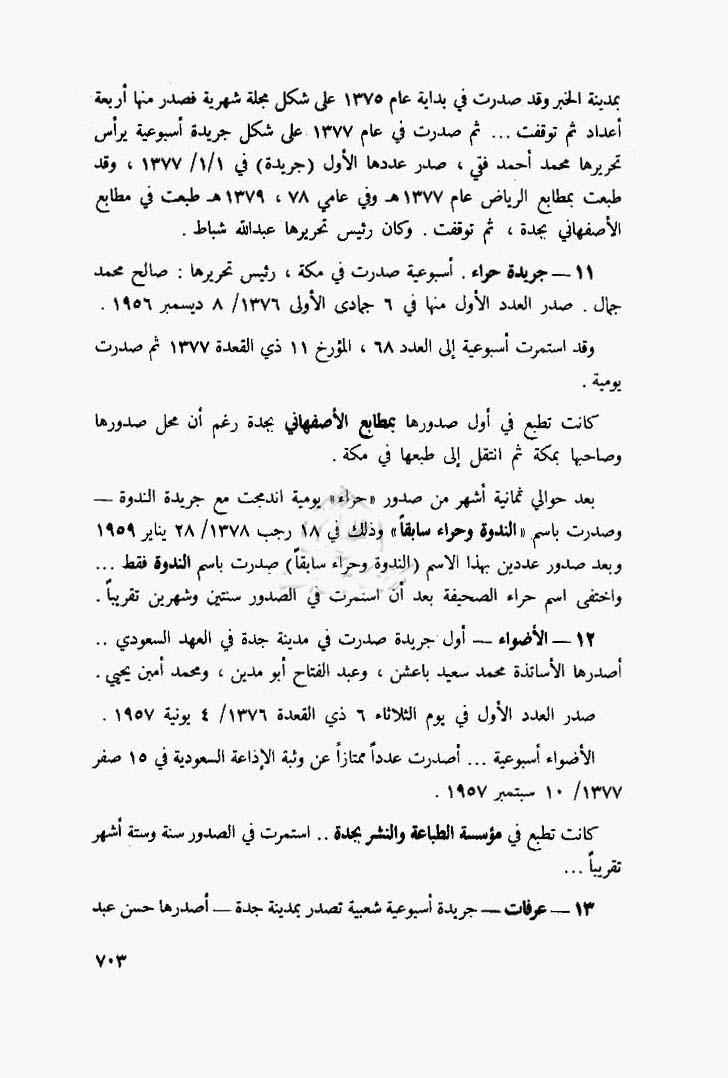 بمدينة الخبر وقد صدرت في بداية عام ١٣٧٥ على شكل مجلة شهرية فصدر منها أربعة
أعداد ثم توقفت ... ثم صدرت في عام ١٣٧٧ على شكل جريدة أسبوعية يرأس
تحريرها محمد أحمد فقي ، صدر عددها الأول (جريدة) في ١/١/ ١٣٧٧ ، وقد
طبعت بمطابع الرياض عام ١٣٧٧هـ وفي عامي ٧٨ ، ١٣٧٩هـ طبعت في مطابع
الأصفهاني بجدة ، ثم توقفت . وكان رئيس تحريرها عبدالله شباط .
١١ — جريدة حراء . أسبوعية صدرت في مكة ، رئيس تحريرها : صالح محمد
جمال . صدر العدد الأول منها في ٦ جمادى الأولى ١٣٧٦/ ٨ ديسمبر ١٩٥٦ .
وقد استمرت أسبوعية إلى العدد ٦٨ ، المؤرخ ١١ ذي القعدة ١٣٧٧ ثم صدرت
يومية .
كانت تطبع في أول صدورها بمطابع الأصفهاني بجدة رغم أن محل صدورها
وصاحبها بمكة ثم انتقل إلى طبعها في مكة .
بعد حوالي ثمانية أشهر من صدور «حراء» يومية اندمجت مع جريدة الندوة —
وصدرت باسم «الندوة وحراء سابقاً» وذلك في ١٨ رجب ١٣٧٨/ ٢٨ يناير ١٩٥٩
وبعد صدور عددين بهذا الاسم (الندوة وحراء سابقاً) صدرت باسم الندوة فقط ...
واختفى اسم حراء الصحيفة بعد أن استمرت في الصدور سنتين وشهرين تقريباً .
١٢ — الأضواء — أول جريدة صدرت في مدينة جدة في العهد السعودي ..
أصدرها الأساتذة محمد سعيد باعشن ، وعبد الفتاح أبو مدين ، ومحمد أمين يحيي .
صدر العدد الأول في يوم الثلاثاء ٦ ذي القعدة ١٣٧٦/ ٤ يونية ١٩٥٧ .
الأضواء أسبوعية ... أصدرت عدداً ممتازاً عن وثبة الإذاعة السعودية في ١٥ صفر
١٣٧٧/ ١٠ سبتمبر ١٩٥٧ .
كانت تطبع في مؤسسة الطباعة والنشر بجدة .. استمرت في الصدور سنة وستة أشهر
تقريباً ...
١٣ — عرفات — جريدة أسبوعية شعبية تصدر بمدينة جدة — أصدرها حسن عبد
٧٠٣